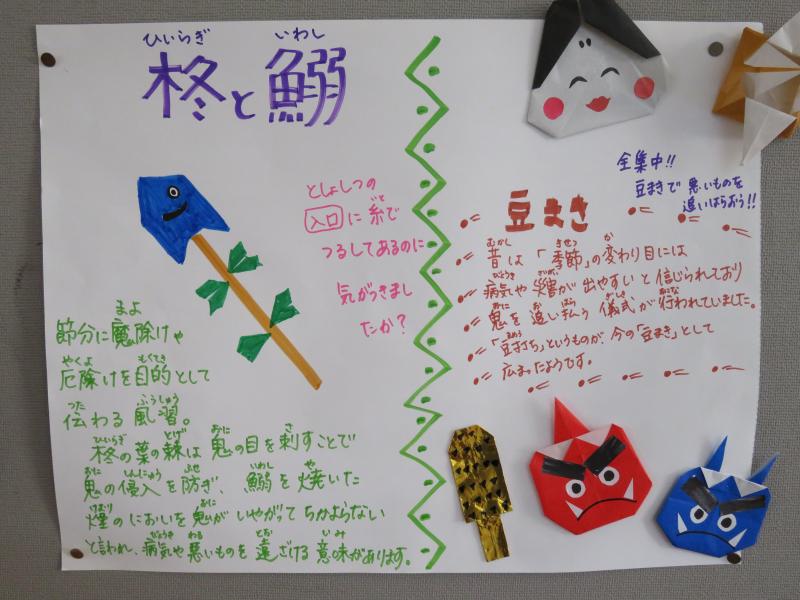 柊と鰯
としょしつの
入口に糸で
つるしてあるのに
気がつきまし
たか?
節分に魔除けや
厄除けを目的として
伝わる風習。
柊の葉の棘は鬼の目を刺すことで
鬼の侵入を防ぎ、鰯を焼いた
煙のにおいを鬼がいやがってちかよらない
と言われ、病気や悪いものを遠ざける意味があります。
全集中!!
豆まきで悪いものを
追いはらおう!!
豆まき
昔は「季節」の変わり目には
病気や災害が出やすいと信じられており
鬼を追い払う儀式が行われていました。
「豆打ち」というものが今の「豆まき」として
広まったようです。